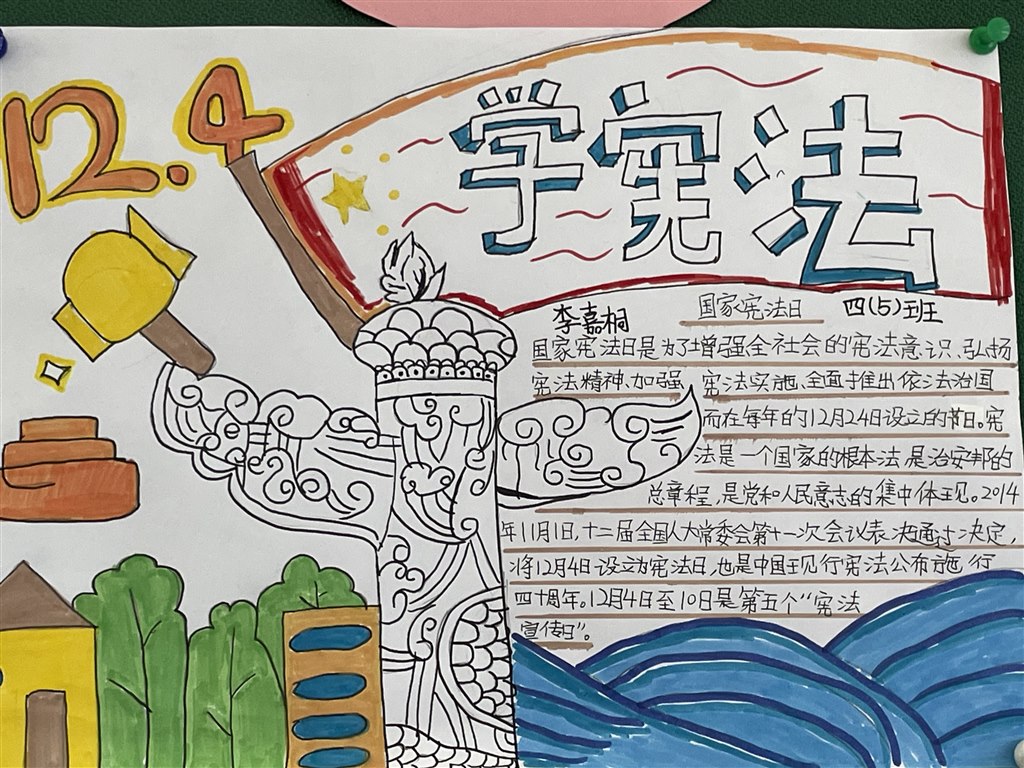 12.4
学宪法
李嘉桐 国家宪法日 四(5)班
国家宪法日是为了增强全社会的宪法意识、弘扬
宪法精神、加强 宪法实施、全面推出依法治国
而在每年的12月24日设立的节日。宪
法是一个国家的根本法是治安邦的
总章程,是党和人民意志的集中体现。2014
年11月1日,十二届全国人大常委会第十一次会议表决通过决定,
将12月4日设立为宪法日,也是中国现行宪法公布施行
四十周年。12月4日至10日是第五个“宪法
宣传日”。